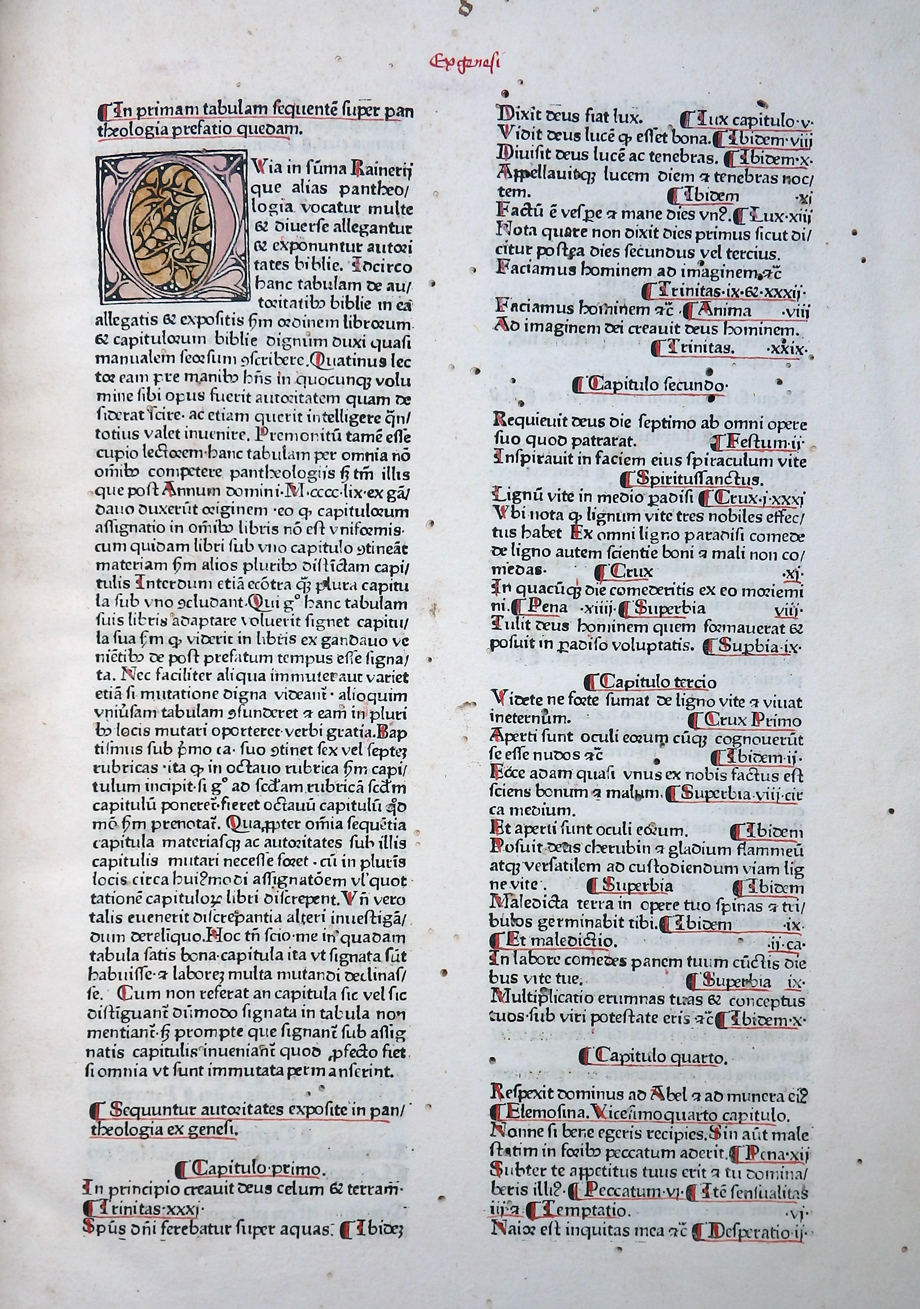 Ex genesi
¶In primam tabulam sequentē super pan
theologia prefatio quedam.
Via in sūma Rainerij
que alias pantheo/
logia vocatur multe
& diuerse allegantur
& exponuntur autori
tates biblie. Idcirco
hanc tabulam de au/
toritatibꝫ biblie in ea
allegatis & expositis ẜm ordinem librorum
& capitulorum biblie dignum duxi quasi
manualem seorsum ꝯscribere. Quatinus lec
tor eam pre manibꝫ hn̄s in quocunqꝫ volu
mine sibi opus fuerit autoritatem quam de
siderat scire. ac etiam querit intelligere q̄n/
totius valet inuenire. Premonitū tamē esse
cupio lectorem·hanc tabulam per omnia nō
om̄ibꝫ competere pantheologiis ſꝫ tm̄ illis
que post Annum domini·M·cccc·lix·ex gā/
dauo duxerūt originem ·eo ꝙ capitulorum
assignatio in om̄ibꝫ libris nō est vniformis·
cum quidam libri sub vno capitulo ꝯtineāt
materiam ẜm alios pluribꝫ distīctam capi/
tulis Interdum etiā ecōtra qꝫ plura capitu
la sub vno ꝯcludant·Qui gͦ hanc tabulam
suis libris adaptare voluerit signet capitu/
la sua ẜm ꝙ viderit in libris ex gandauo ve
niētibꝫ de post prefatum tempus esse signa/
ta. Nec faciliter aliqua immutet aut variet
etiā si mutatione digna videant̄· alioquim
vniūsam tabulam ꝯfunderet ⁊ eam in pluri
bꝫ locis mutari oporteret verbi gratia.Bap
tismus sub p̄mo ca· suo ꝯtinet sex vel septeꝫ
rubricas ·ita ꝙ in octauo rubrica ẜm capi/
tulum incipit·si gͦ ad scd̄am rubricā scd̄m
capitulū poneret̄·fieret octauū capitulū qd̄
mō ẜm prenotat̄. Quaꝓpter om̄ia sequētia
capitula materiasqꝫ ac autoritates sub illis
capitulis mutari necesse foret · cū in pluris
locis circa huiꝰmodi assignatōem vl̓ quot
tationē capituloꝝ libri discrepent. Vn̄ vero
talis euenerit discrepantia alteri inuestigā/
dum derelīquo.Hoc tn̄ scio·me in quadam
tabula satis bona·capitula ita vt signata sūt
habuisse·⁊ laboreꝫ multa mutandi declinas/
se. Cum non referat an capitula sic vel sic
distīguant̄ dūmodo signata in tabula non
mentiant̄·ſꝫ prompte que signant̄ sub assig
natis capitulis inueniant̄ quod ꝓfecto fiet
si omnia vt sunt immutata permanserint.
¶ Sequuntur autoritates exposite in pan/
theologia ex genesi.
¶ Capitulo·primo.
In principio creauit deus celum & terram·
¶Trinitas·xxxj·
Spūs dn̄i ferebatur super aquas. ¶Ibideꝫ
Dixit deus fiat lux. ¶Lux capitulo·v·
Vidit deus lucē ꝙ esset bona.¶Ibidem·viij
Diuisit deus lucē ac tenebras. ¶Ibidem·x·
Appellauitqꝫ lucem diem ⁊ tenebras noc/
tem. ¶Ibidem ·xj
Factū ē vesꝑe ⁊ mane dies vnꝰ.¶Lux·xiij
Nota quare non dixit dies primus sicut di/
citur postea dies secundus vel tercius.
Faciamus hominem ad imaginem ⁊c̄
¶Trinitas·ix·&·xxxij·
Faciamus hominem ⁊c̄ ·¶Anima ·viij
Ad imaginem dei creauit deus hominem.
¶Trinitas. ·xxix·
¶Capitulo secundo·
Requieuit deus die septimo ab omni opere
suo quod patrarat. ¶Festum·ij·
Inspirauit in faciem eius spiraculum vite
¶Spiritussanctus.
Lignū vite in medio ꝑadisi ¶Crux·j·xxxj
Vbi nota ꝙ lignum vite tres nobiles effec/
tus habet Ex omni ligno paradisi comede
de ligno autem scientie boni ⁊ mali non co/
medas· ¶Crux ·xj·
In quacūqꝫ die comederitis ex eo moriemi
ni.¶Pena ·xiiij·¶Superbia viij·
Tulit deus hominem quem formauerat &
posuit in ꝑadiso voluptatis. ¶Suꝑbia·ix·
¶Capitulo tercio
Videte ne forte sumat de ligno vite ⁊ viuat
ineternum. ¶Crux Primo
Aperti sunt oculi eorum cūqꝫ cognouerūt
se esse nudos ⁊c̄ ¶Ibidem·ij·
Ecce adam quasi vnus ex nobis factus est
sciens bonum ⁊ malum.¶Superbia·viij·cir
ca medium.
Et aperti sunt oculi eorum. ¶Ibidem
Posuit deus cherubin ⁊ gladium flammeū
atqꝫ versatilem ad custodiendum viam lig
ne vite . ¶Superbia ¶Ibidem
Maledicta terra in opere tuo spinas ⁊ tri/
bulos germinabit tibi.¶Ibidem ·ix·
¶Et maledictio. ·ij·ca·
In labore comedes panem tuum cūctis die
bus vite tue. ¶Superbia ix·
Multiplicatio erumnas tuas & conceptus
tuos·sub viri potestate eris ⁊c̄¶Ibidem·x·
¶Capitulo quarto.
Respexit dominus ad Abel ⁊ ad munera eiꝰ
¶Elemosina. Vicesimoquarto capitulo.
Nonne si bene egeris recipies.Sin aūt male
statim in foribꝫ peccatum aderit.¶Pena·xij
Subter te appetitus tuus erit ⁊ tu domina/
beris illiꝰ.¶Peccatum·vj·¶Itē sensualitas
iijͣ·¶Temptatio. ·vj·
Maior est inquitas mea ⁊c̄ ¶Desperatio·ij·